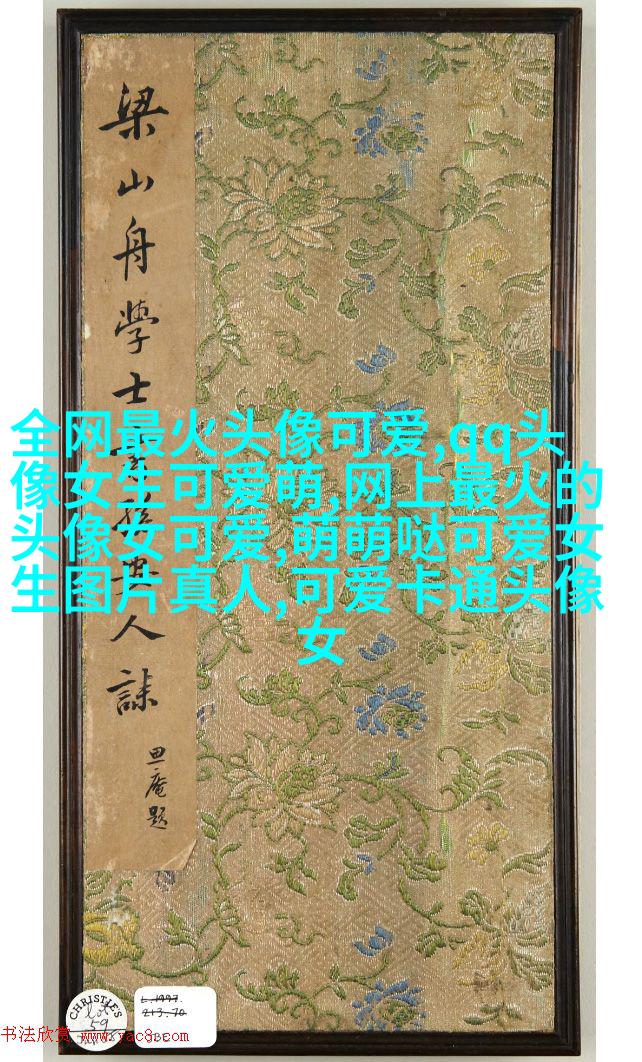 梁山舟學士書張㳟人誄
思庵題
全网最火头像可爱,qq头
像女生可爱萌,网上最火的
头像女可爱,萌萌哒可爱女
生图片真人,可爱卡通头像
女
CHRISTIE'S
Lot
59
L.1997.
213.70
书法欣赏 www.yac8.com